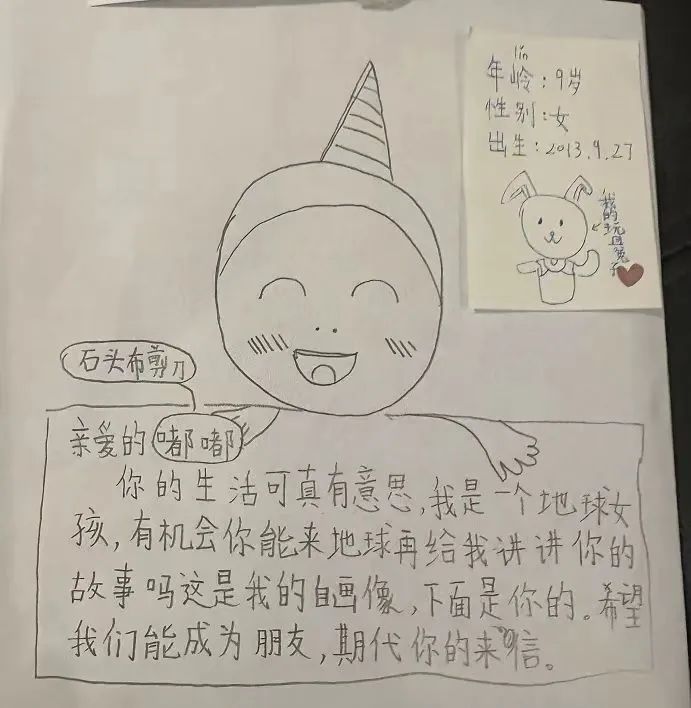 lin
年岭：9岁
性别：女
出生：2013.9.27
我的玩具兔子
石头布剪刀
亲爱的嘟嘟
你的生活可真有意思，我是一个地球女
孩，有机会你能来地球再给我讲讲你的
故事吗这是我的自画像，下面是你的。希望
我们能成为朋友，期代你的来信。